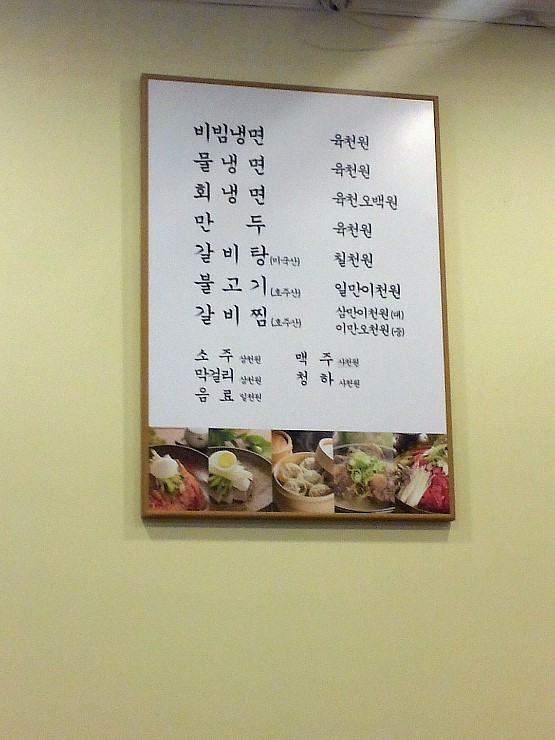 비빔냉면 육천원
물냉면 육천원
회냉면 육천오백원
만두 육천원
갈비탕(미국산) 칠천원
불고기(호주산) 일만이천원
갈비찜(호주산) 삼만이천원(대)
이만오천원(중)
소주 삼천원 맥주 사천원
막걸리 삼천원 청하 사천원
음료 일천원